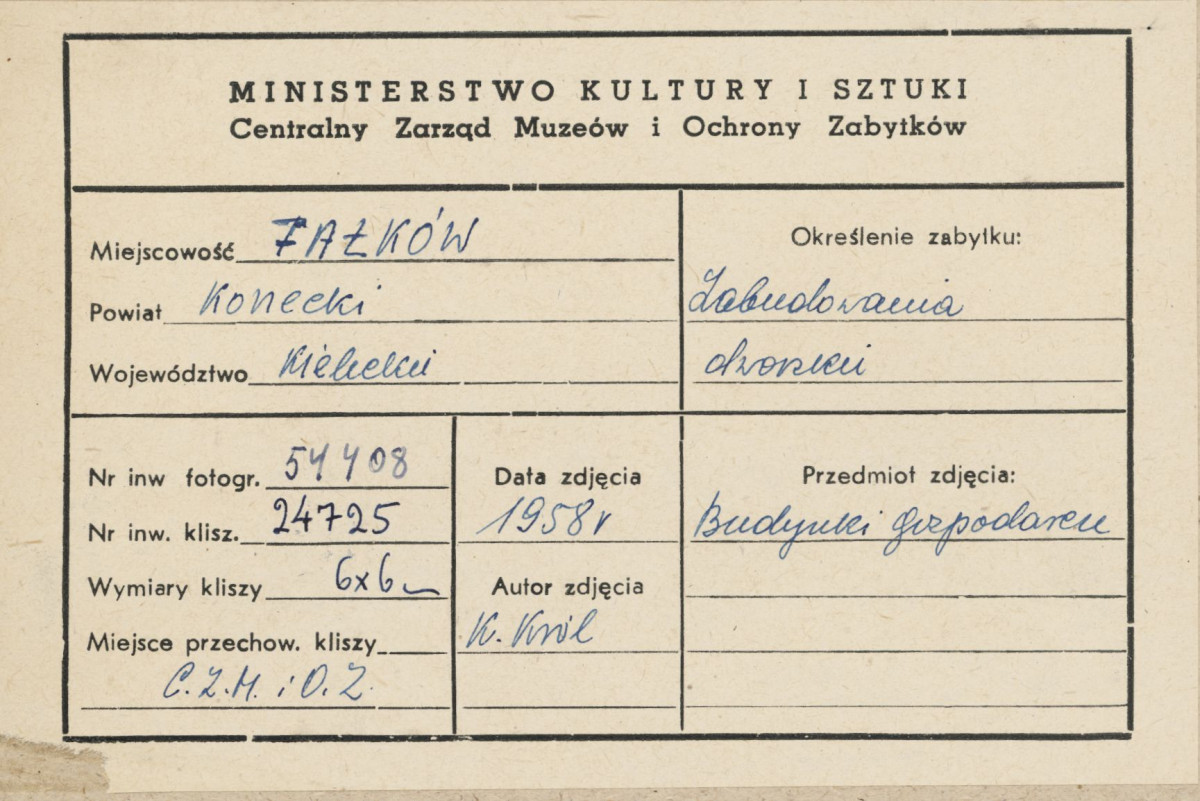 MINISTERSTWO KULTURY I SZTUKI
Centralny Zarząd Muzeów i Ochrony Zabytków
Miejscowość FAŁKÓW
Powiat Konecki
Województwo Kielecki
Określenie zabytku:
Zabudowania
dworskie
Nr inw fotogr. 54408
Nr inw. klisz. 24725
Wymiary kliszy 6x6
Miejsce przechow. kliszy
C.Z.M. i O.Z.
Data zdjęcia
1958r
Autor zdjęcia
K. Król
Przedmiot zdjęcia:
Budynki gospodarcze